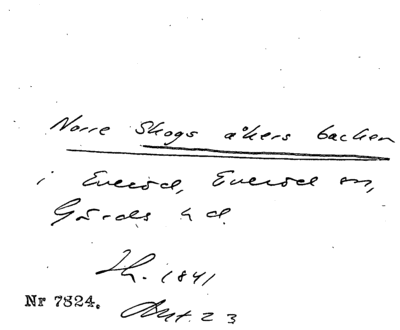 Norre Skogs åkers backen
i Everöd, Everöd sn,
Gärds hd.
Sk. 1841
Nr 7824. Akt. 23